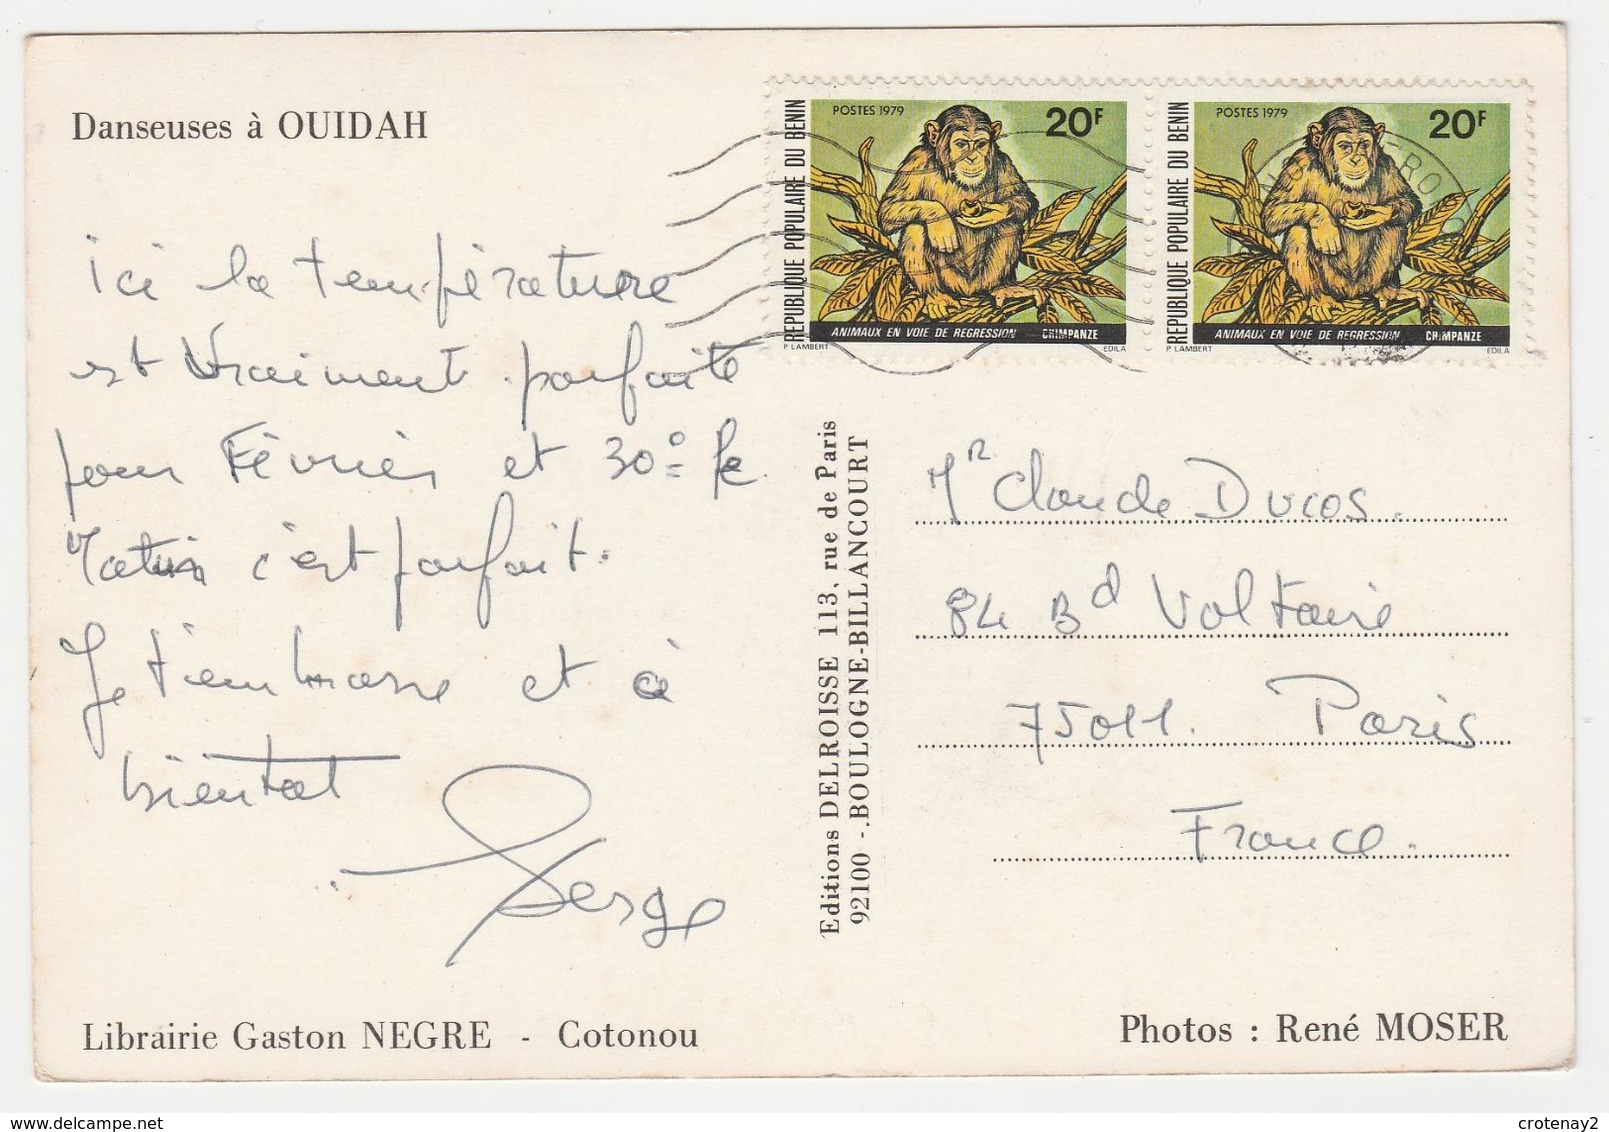 Danseuses à OUIDAH
ici la température
est vraiment parfaite
pour Février et 30° le
Matin c'est parfait.
Je t'embrasse et à
bientot
Serge
Librairie Gaston NEGRE - Cotonou
Editions DELROISSE 113, rue de Paris
92100 - BOULOGNE-BILLANCOURT
REPUBLIQUE POPULAIRE DU BENIN
POSTES 1979
20F
ANIMAUX EN VOIE DE REGRESSION CHIMPANZE
P LAMBERT EDILA
REPUBLIQUE POPULAIRE DU BENIN
POSTES 1979
20F
ANIMAUX EN VOIE DE REGRESSION CHIMPANZE
P LAMBERT EDILA
Mr Claude Ducos.
84 Bd Voltaire
75011. Paris
France.
Photos : René MOSER
crotenay2